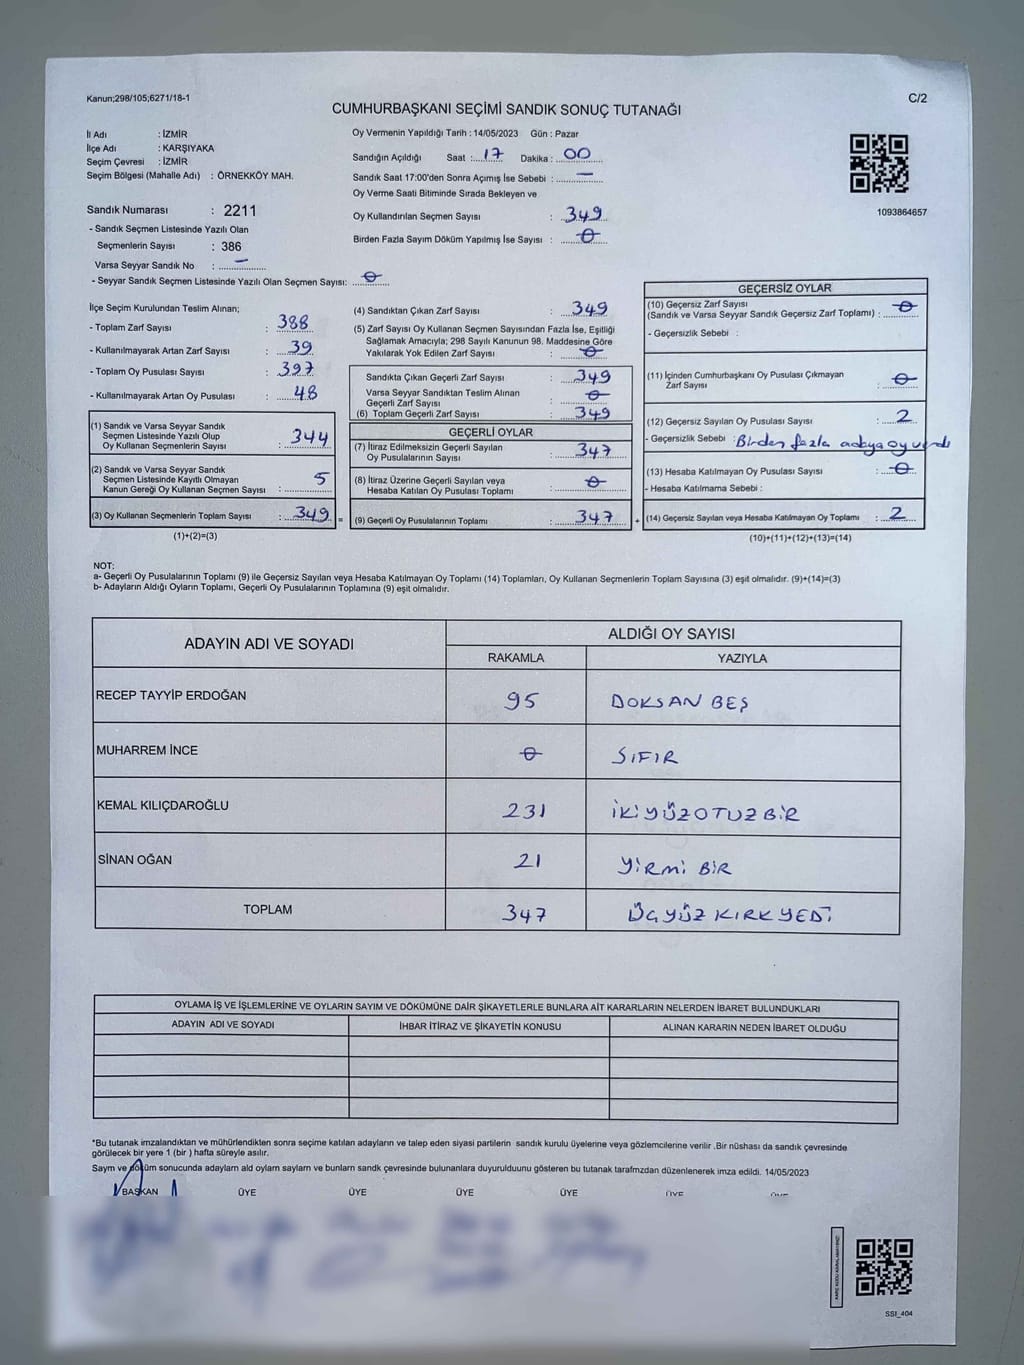 Kanun;298/105;6271/18-1
C/2
CUMHURBAŞKANI SEÇİMİ SANDIK SONUÇ TUTANAĞI
İl Adı : İZMİR
İlçe Adı : KARŞIYAKA
Seçim Çevresi : İZMİR
Seçim Bölgesi (Mahalle Adı) : ÖRNEKKÖY MAH.
Sandık Numarası : 2211
- Sandık Seçmen Listesinde Yazılı Olan
Seçmenlerin Sayısı : 386
Varsa Seyyar Sandık No : –
- Seyyar Sandık Seçmen Listesinde Yazılı Olan Seçmen Sayısı: 0
Oy Vermenin Yapıldığı Tarih : 14/05/2023 Gün : Pazar
Sandığın Açıldığı Saat : 17 Dakika : 00
Sandık Saat 17:00'den Sonra Açımış İse Sebebi : –
Oy Verme Saati Bitiminde Sırada Bekleyen ve
Oy Kullandırılan Seçmen Sayısı : 349
Birden Fazla Sayım Döküm Yapılmış İse Sayısı : 0
1093864657
İlçe Seçim Kurulundan Teslim Alınan;
- Toplam Zarf Sayısı : 388
- Kullanılmayarak Artan Zarf Sayısı : 39
- Toplam Oy Pusulası Sayısı : 397
- Kullanılmayarak Artan Oy Pusulası : 48
(1) Sandık ve Varsa Seyyar Sandık
Seçmen Listesinde Yazılı Olup
Oy Kullanan Seçmenlerin Sayısı : 344
(2) Sandık ve Varsa Seyyar Sandık
Seçmen Listesinde Kayıtlı Olmayan
Kanun Gereği Oy Kullanan Seçmen Sayısı : 5
(3) Oy Kullanan Seçmenlerin Toplam Sayısı : 349 =
(1)+(2)=(3)
(4) Sandıktan Çıkan Zarf Sayısı : 349
(5) Zarf Sayısı Oy Kullanan Seçmen Sayısından Fazla İse, Eşitliği
Sağlamak Amacıyla; 298 Sayılı Kanunun 98. Maddesine Göre
Yakılarak Yok Edilen Zarf Sayısı : 0
Sandıkta Çıkan Geçerli Zarf Sayısı : 349
Varsa Seyyar Sandıktan Teslim Alınan
Geçerli Zarf Sayısı : 0
(6) Toplam Geçerli Zarf Sayısı : 349
GEÇERLİ OYLAR
(7) İtiraz Edilmeksizin Geçerli Sayılan
Oy Pusulalarının Sayısı : 347
(8) İtiraz Üzerine Geçerli Sayılan veya
Hesaba Katılan Oy Pusulası Toplamı : 0
(9) Geçerli Oy Pusulalarının Toplamı : 347 +
GEÇERSİZ OYLAR
(10) Geçersiz Zarf Sayısı
(Sandık ve Varsa Seyyar Sandık Geçersiz Zarf Toplamı) : 0
- Geçersizlik Sebebi :
(11) İçinden Cumhurbaşkanı Oy Pusulası Çıkmayan
Zarf Sayısı : 0
(12) Geçersiz Sayılan Oy Pusulası Sayısı : 2
- Geçersizlik Sebebi : Birden fazla adaya oy verdi
(13) Hesaba Katılmayan Oy Pusulası Sayısı : 0
- Hesaba Katılmama Sebebi :
(14) Geçersiz Sayılan veya Hesaba Katılmayan Oy Toplamı : 2
(10)+(11)+(12)+(13)=(14)
NOT:
a- Geçerli Oy Pusulalarının Toplamı (9) ile Geçersiz Sayılan veya Hesaba Katılmayan Oy Toplamı (14) Toplamları, Oy Kullanan Seçmenlerin Toplam Sayısına (3) eşit olmalıdır. (9)+(14)=(3)
b- Adayların Aldığı Oyların Toplamı, Geçerli Oy Pusulalarının Toplamına (9) eşit olmalıdır.
ADAYIN ADI VE SOYADI
ALDIĞI OY SAYISI
RAKAMLA YAZIYLA
RECEP TAYYİP ERDOĞAN 95 DOKSAN BEŞ
MUHARREM İNCE 0 SIFIR
KEMAL KILIÇDAROĞLU 231 İKİYÜZOTUZBİR
SİNAN OĞAN 21 YİRMİ BİR
TOPLAM 347 ÜÇYÜZ KIRK YEDİ
OYLAMA İŞ VE İŞLEMLERİNE VE OYLARIN SAYIM VE DÖKÜMÜNE DAİR ŞİKAYETLERLE BUNLARA AİT KARARLARIN NELERDEN İBARET BULUNDUKLARI
ADAYIN ADI VE SOYADI İHBAR İTİRAZ VE ŞİKAYETİN KONUSU ALINAN KARARIN NEDEN İBARET OLDUĞU
*Bu tutanak imzalandıktan ve mühürlendikten sonra seçime katılan adayların ve talep eden siyasi partilerin sandık kurulu üyelerine veya gözlemcilerine verilir .Bir nüshası da sandık çevresinde
görülecek bir yere 1 (bir ) hafta süreyle asılır.
Sayım ve döküm sonucunda adayların ald oyların sayların ve bunların sandk çevresinde bulunanlara duyurulduunu gösteren bu tutanak tarafmzdan düzenlenerek imza edildi. 14/05/2023
BAŞKAN ÜYE ÜYE ÜYE ÜYE ÜYE
SSI_404